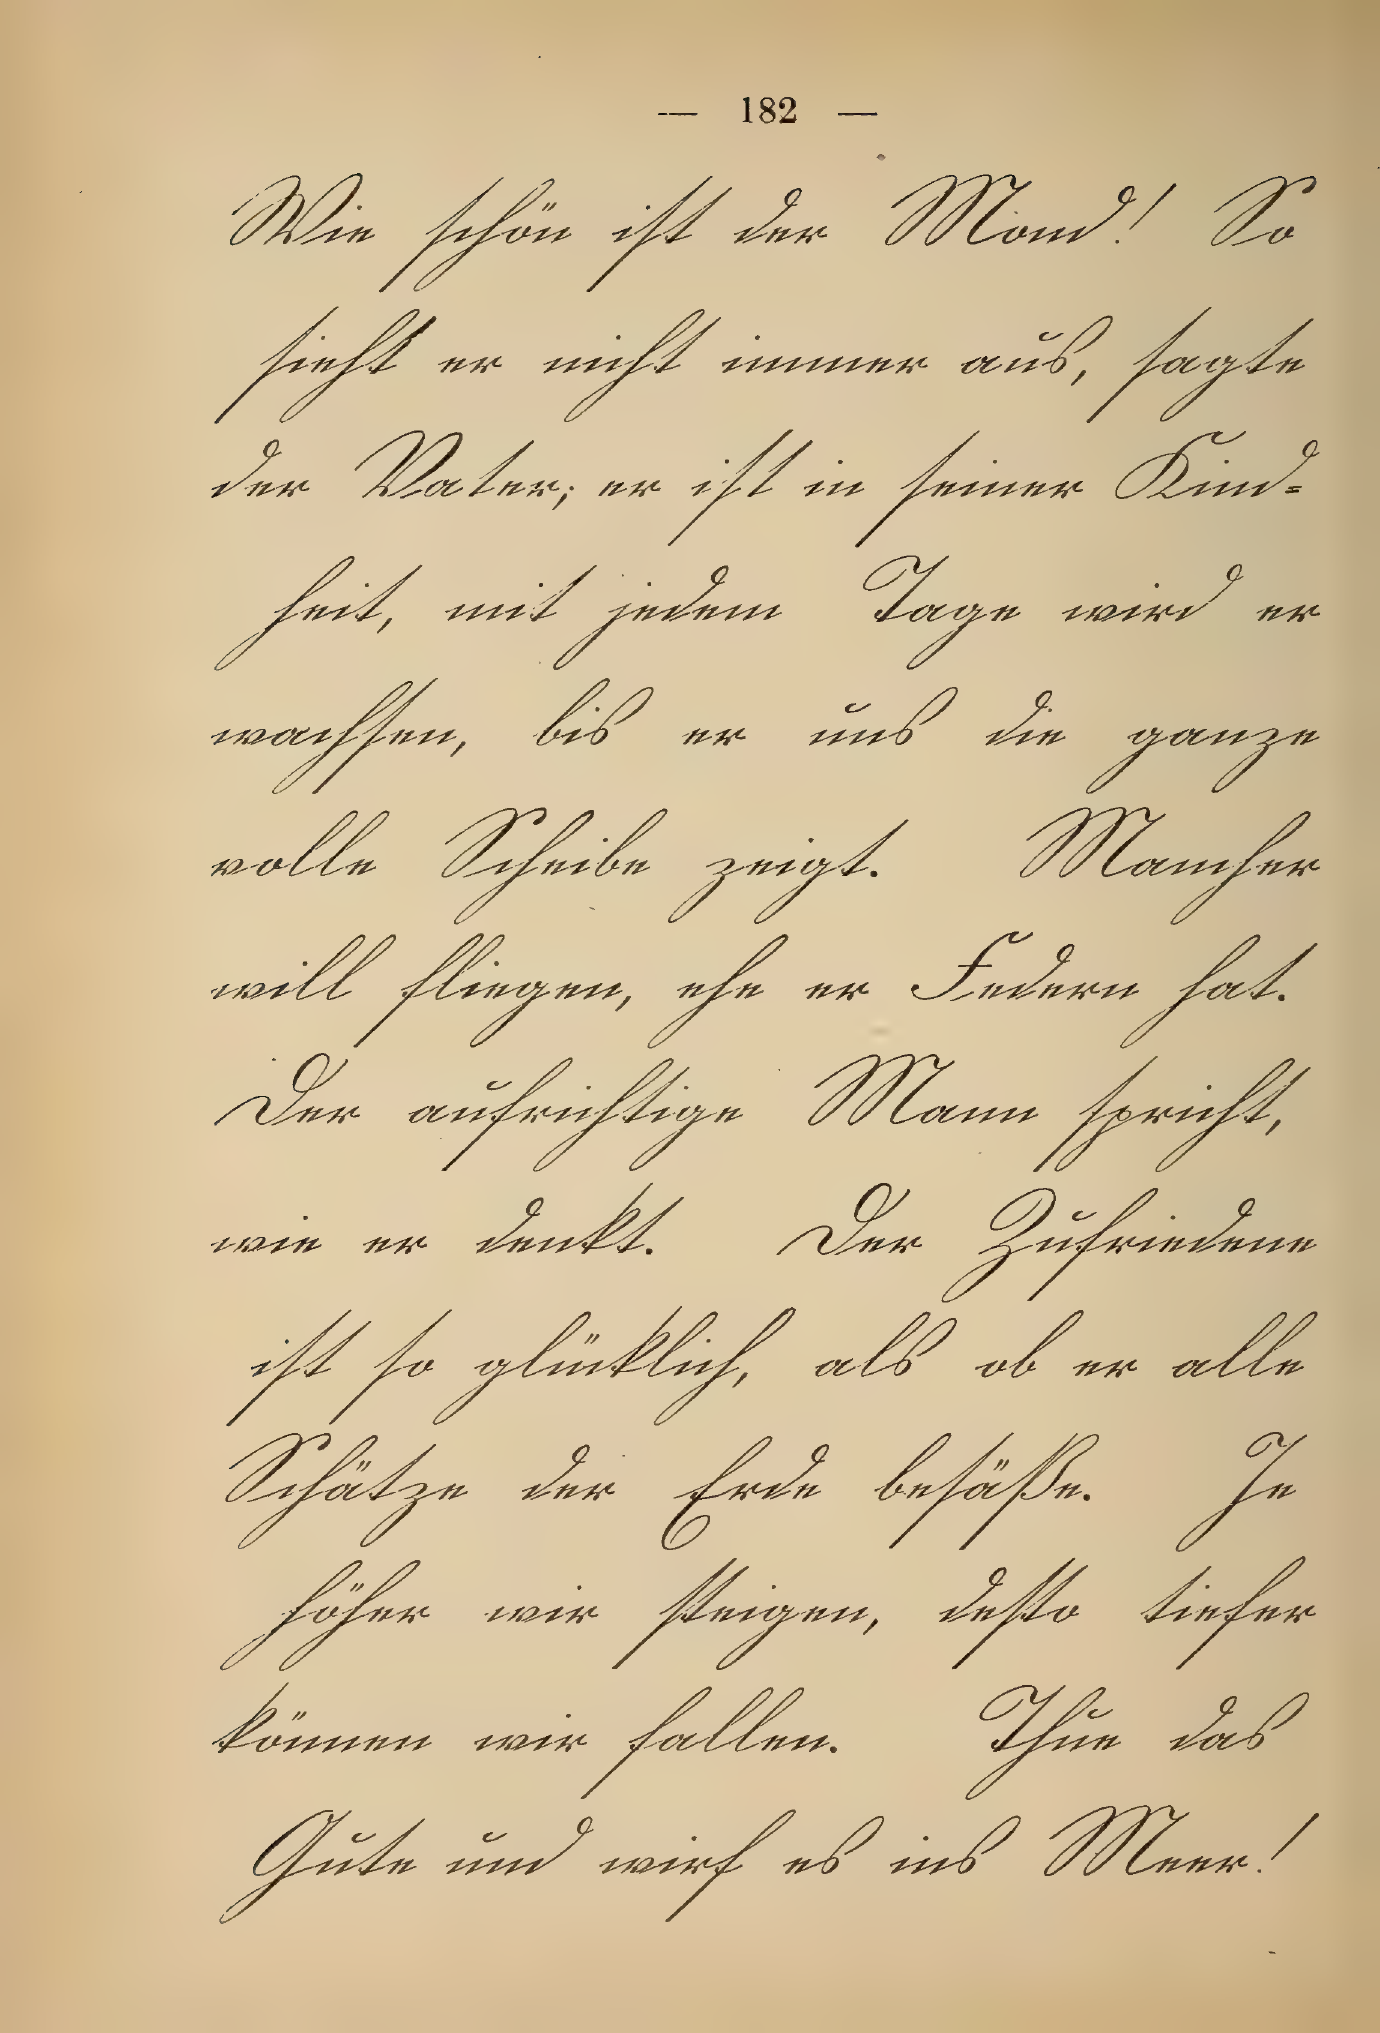 — 182 —
Wie schön ist der Mond! So
sieht er nicht immer aus, sagte
der Vater; er ist in seiner Kind=
heit, mit jedem Tage wird er
wachsen, bis er uns die ganze
volle Scheibe zeigt. Mancher
will fliegen, ehe er Federn hat.
Der aufrichtige Mann spricht,
wie er denkt. Der Zufriedene
ist so glücklich, als ob er alle
Schätze der Erde besäße. Je
höher wir steigen, desto tiefer
können wir fallen. Thue das
Gute und wirf es ins Meer!